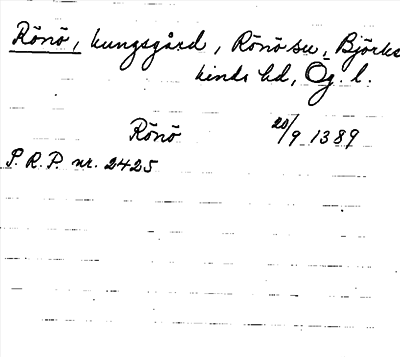 Rönö, kungsgård, Rönö sn, Björke
kinds hd, Ög. l.
Rönö 20/9 1389
P.R.P. nr. 2425